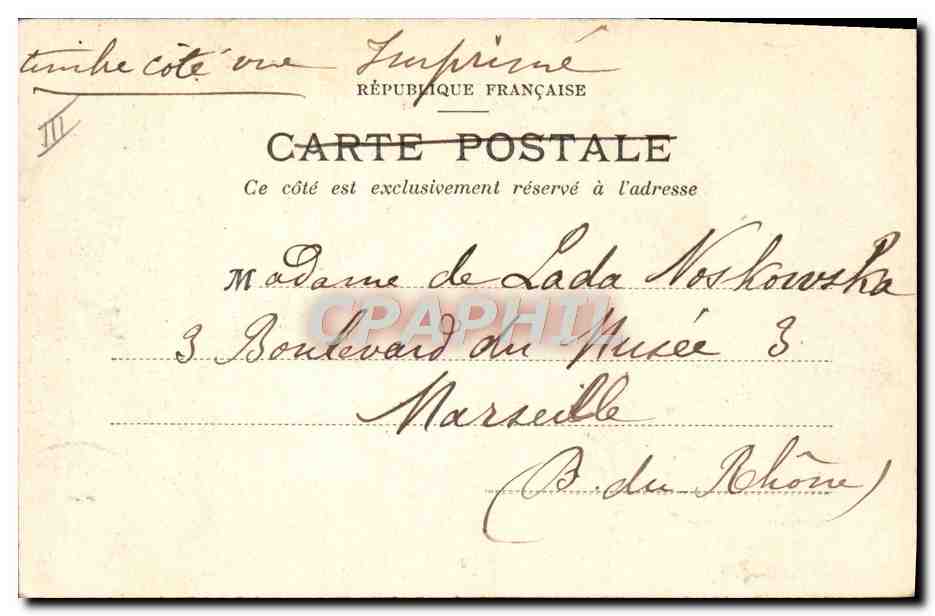 timbre côté vue Imprimé
RÉPUBLIQUE FRANÇAISE
III
CARTE POSTALE
Ce côté est exclusivement réservé à l'adresse
Madame de Lada Noskowska
CPAPHIL
3 Boulevard du Musée 3
Marseille
(B. du Rhône)